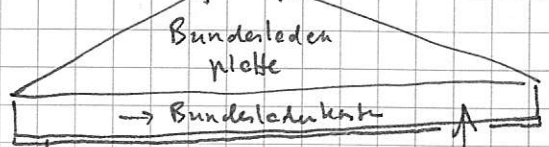 Bundesladen
platte
→ Bundesladenkasten